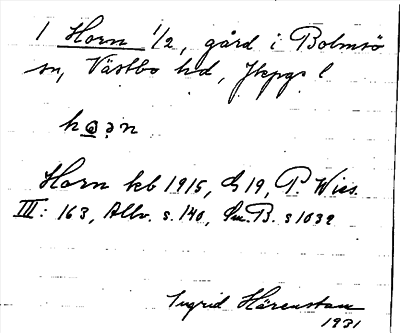 1 Horn 1/2, gård i Bolmsö
sn, Västbo hd, Jkpgs l
Horn kb 1915, G 19, P. Wies.
III: 163, Allv. s. 140, Sm. B. s 1032
Ingrid Härenstam
1931